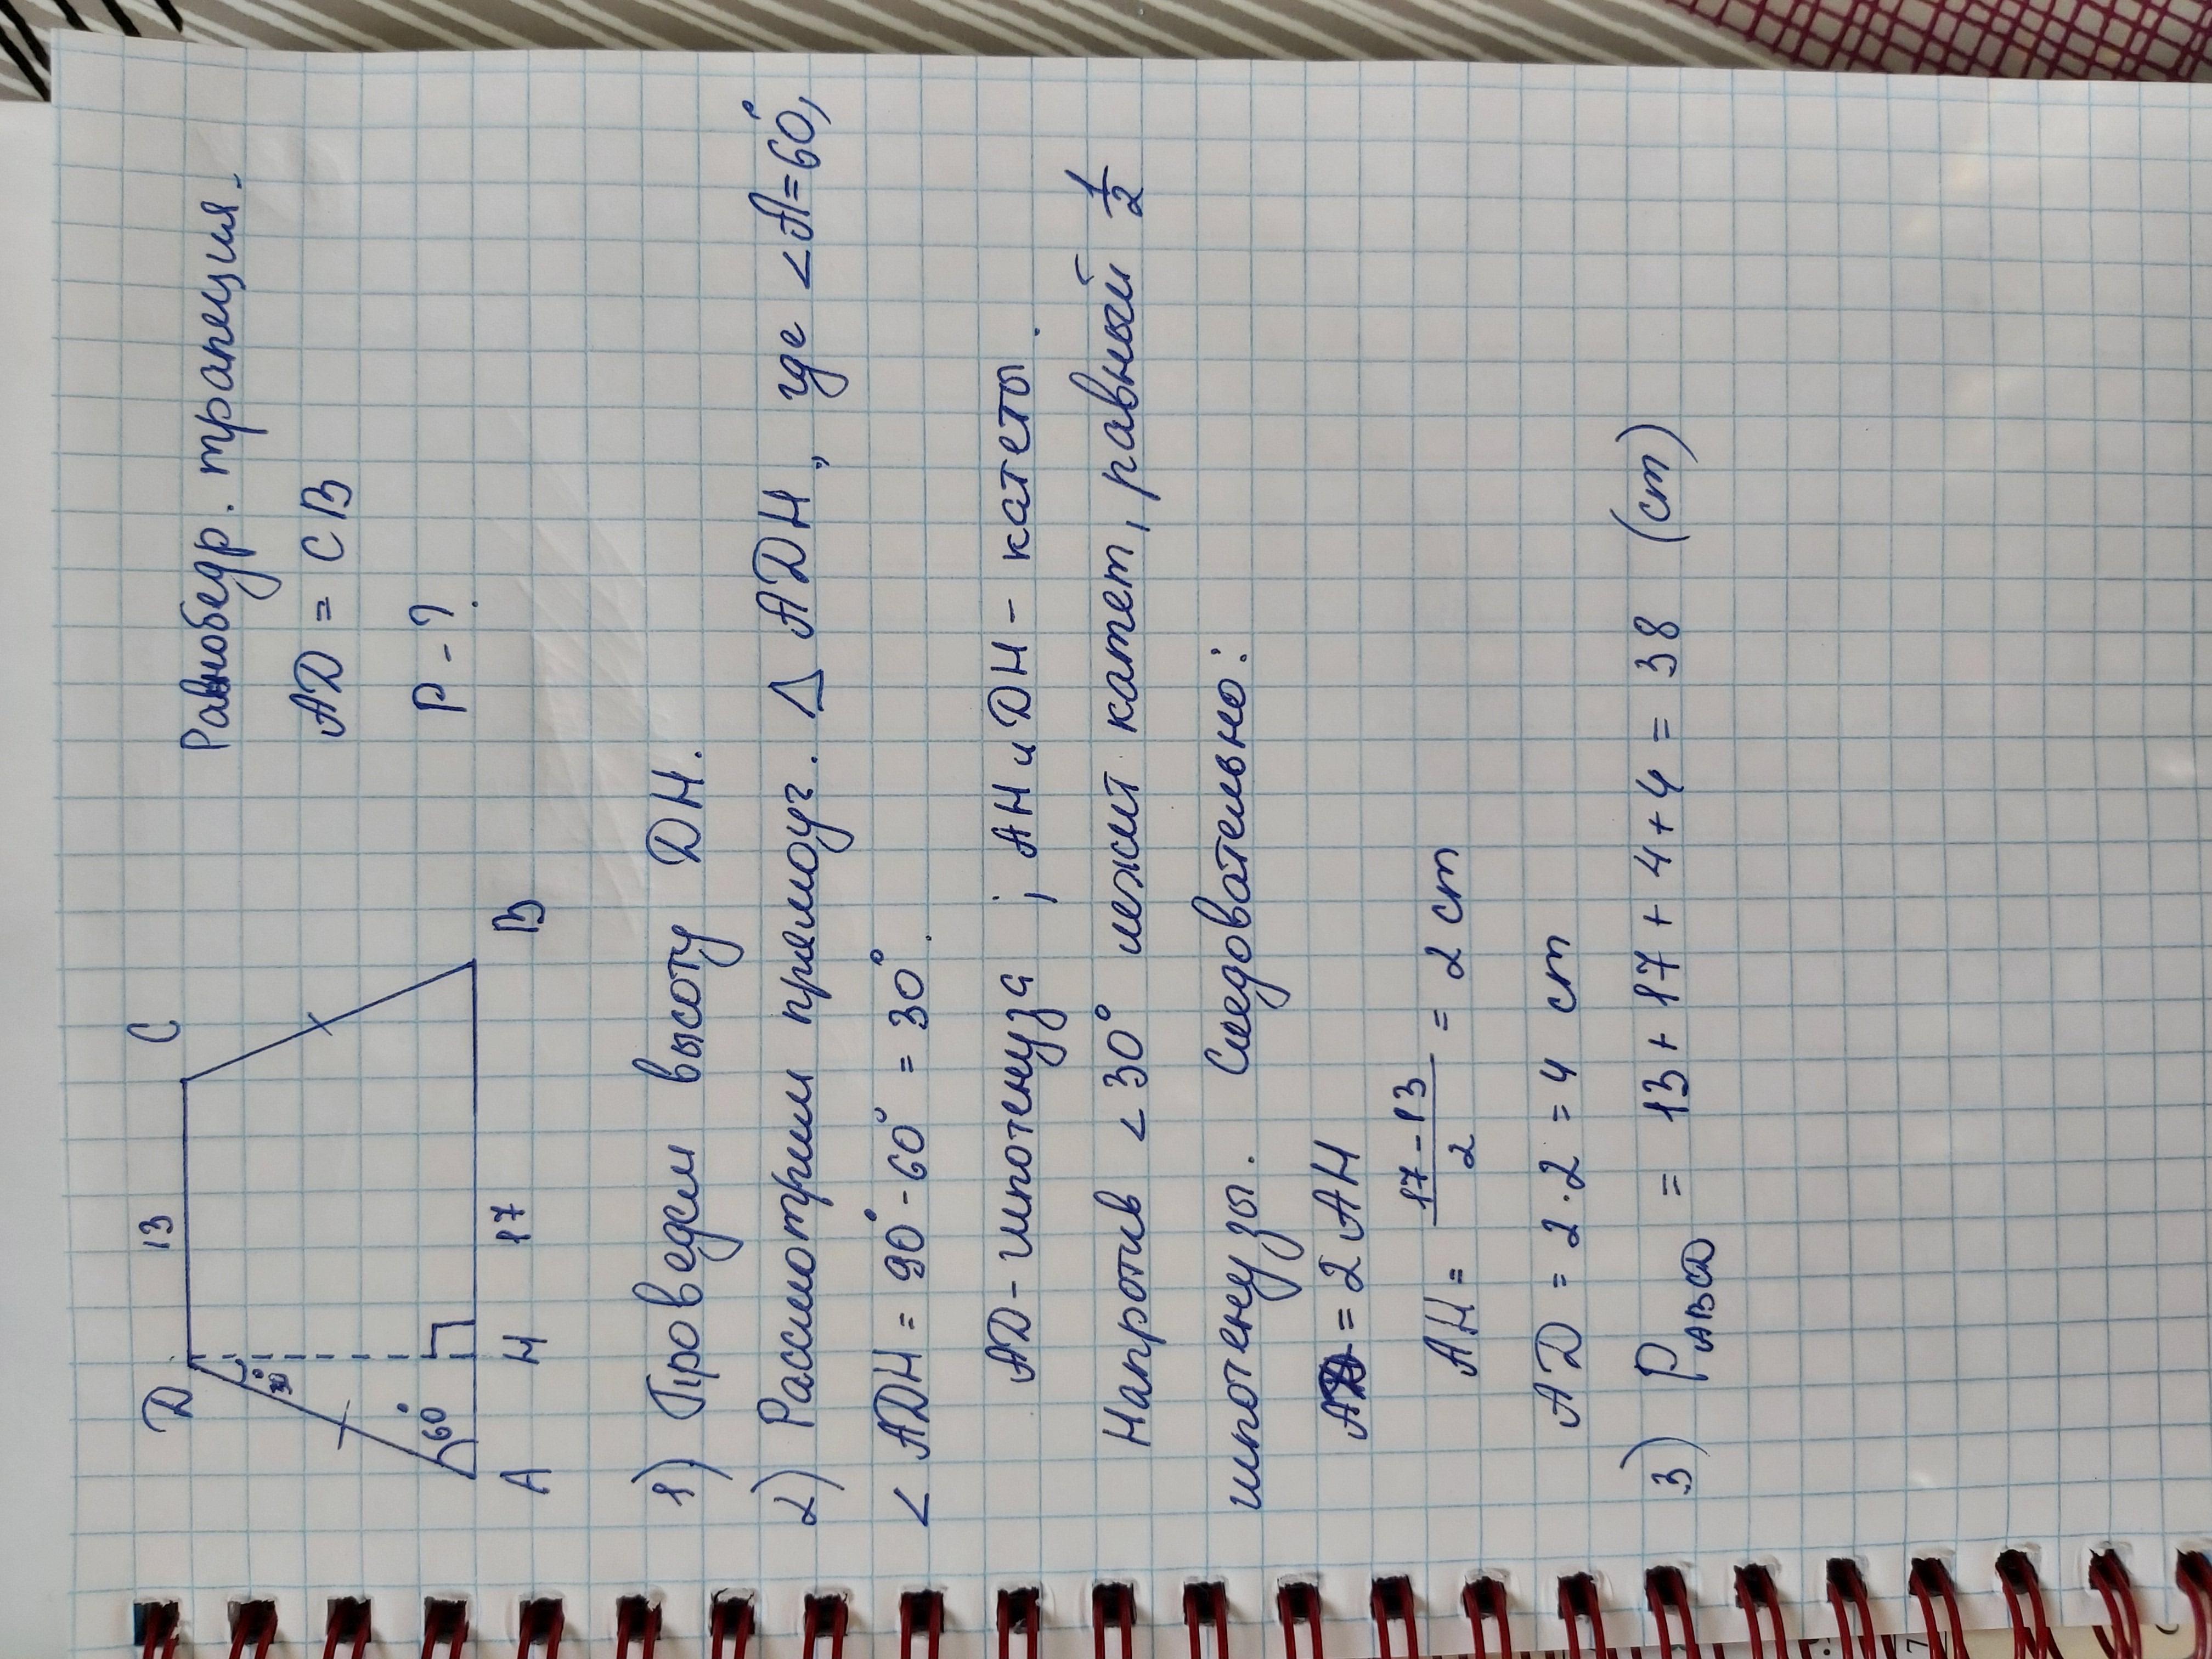 Равнобедр. трапеция.
AD = CB
P - ?
D 13 C
30°
60°
A H 17 B
1) Проведем высоту DH.
2) Рассмотрим прямоуг. △ ADH, где <A=60°,
< ADH = 90° - 60° = 30°.
AD - гипотенуза ; AH и DH - катеты.
Напротив < 30° лежит катет, равный 1/2
гипотенузы. Следовательно:
AD = 2 AH
AH = 17-13/2 = 2 cm
AD = 2 · 2 = 4 cm
3) P ABCD = 13 + 17 + 4 + 4 = 38 (cm)